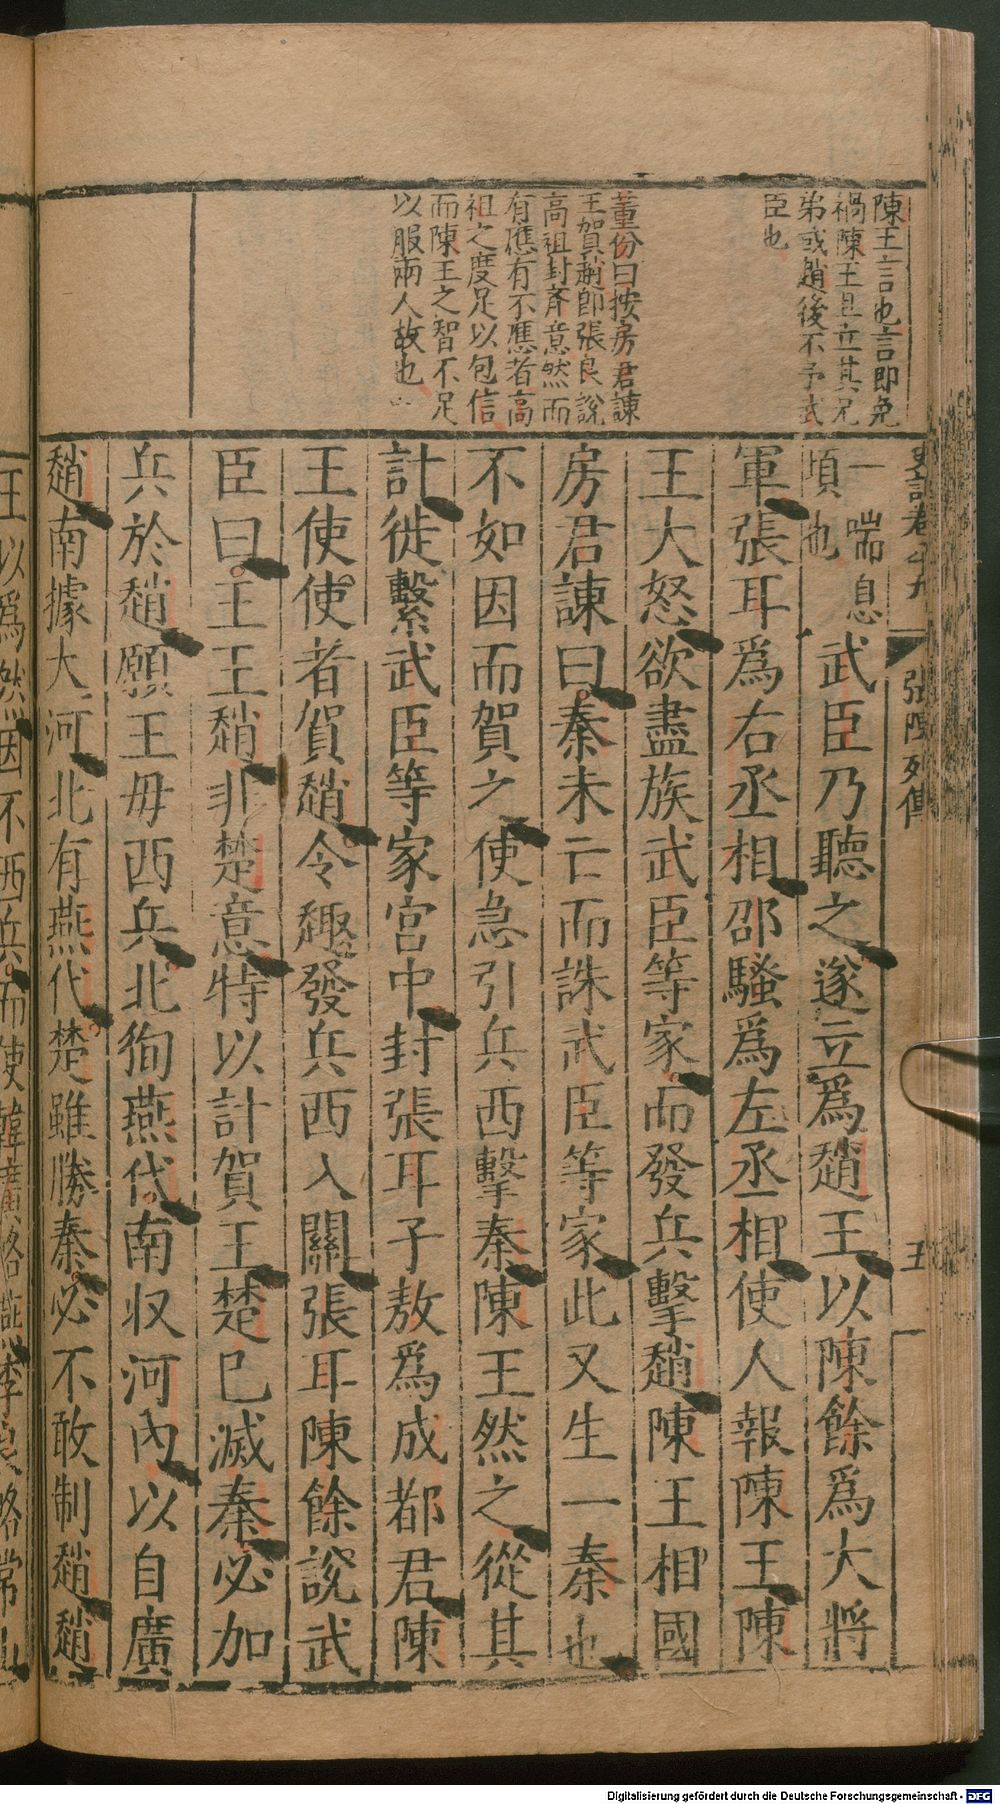 陳王言也言即免
禍陳王且立其兄
弟或趙後不予武
臣也
董份曰按房君諫
王賀趙即張良說
高祖封齊意然而
有應有不應者高
祖之度足以包信
而陳王之智不足
以服兩人故也
張陳列傳
五
一喘息
頃也
武臣乃聽之遂立爲趙王以陳餘爲大將
軍張耳爲右丞相邵騷爲左丞相使人報陳王陳
王大怒欲盡族武臣等家而發兵擊趙陳王相國
房君諫曰秦未亡而誅武臣等家此又生一秦也
不如因而賀之使急引兵西擊秦陳王然之從其
計徙繫武臣等家宮中封張耳子敖爲成都君陳
王使使者賀趙令趣發兵西入關張耳陳餘說武
臣曰王王趙非楚意特以計賀王楚已滅秦必加
兵於趙願王毋西兵北徇燕代南收河內以自廣
趙南據大河北有燕代楚雖勝秦必不敢制趙趙
王以爲然因不西兵而使韓廣略燕李良略常山
Digitalisierung gefördert durch die Deutsche Forschungsgemeinschaft - DFG